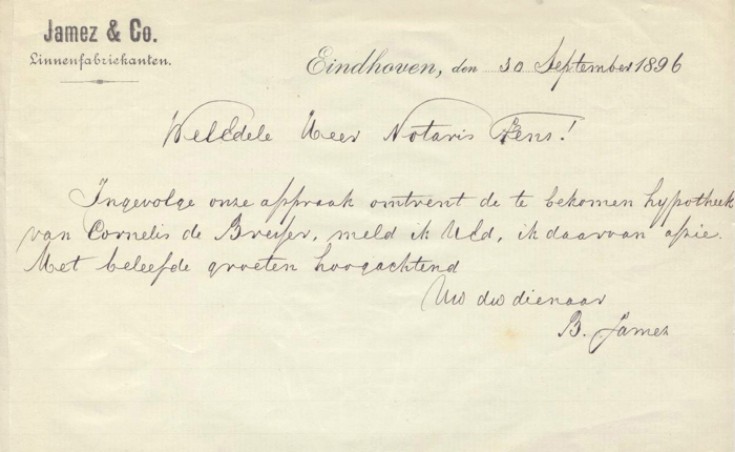 Jamez & Co.
Linnenfabriekanten.
Eindhoven, den 30 September 1896
WelEdele Heer Notaris Fens!
Ingevolge onze afspraak omtrent de te bekomen hypotheek
van Cornelis de Breijer, meld ik UEd, ik daarvan afzie.
Met beleefde groeten hoogachtend
Uw dw dienaar
B. Jamez